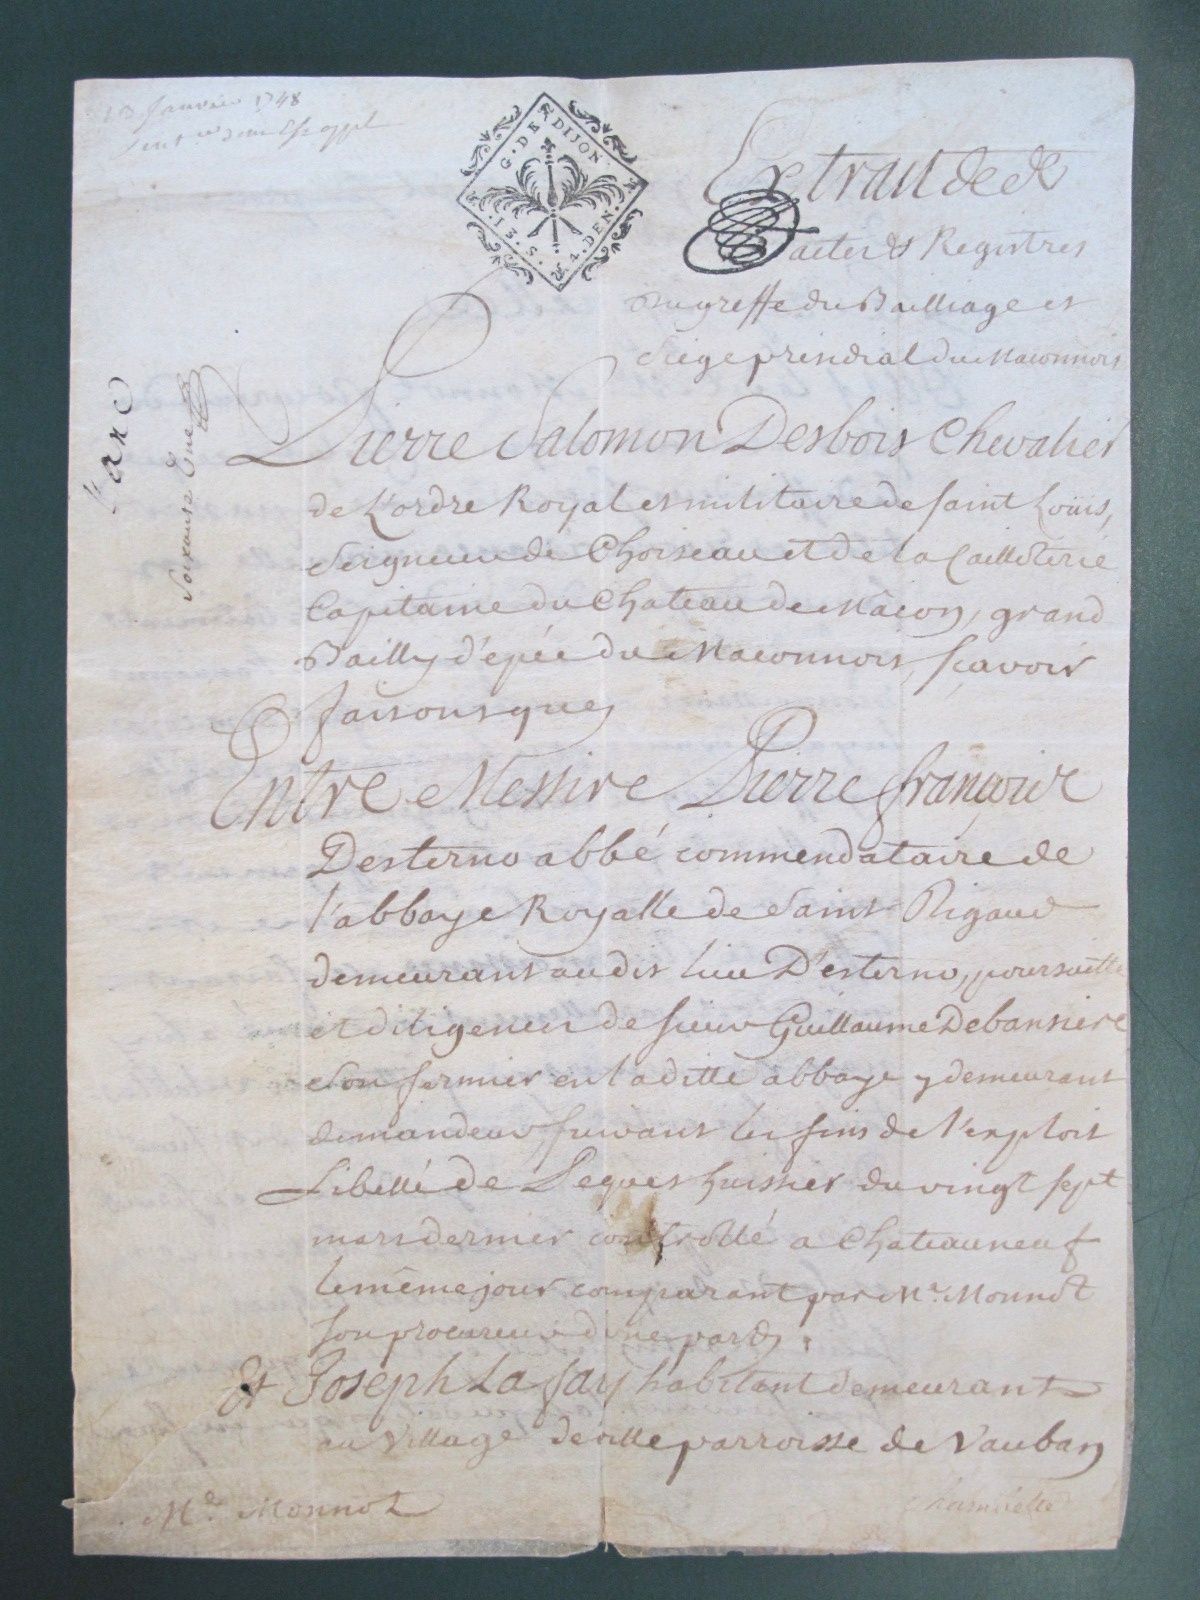 13 Janvier 1748
G. DE DIJON
13. S. 4. DEN.
Extrait de
actes & Registres
Du greffe du Bailliage et
Siege presidial du Maconnois
Pierre Salomon Desbois Chevalier
de L'ordre Royal et militaire de saint Loüis,
Seigneur de Choiseau et de la Cailloterie
Capitaine du Chateau de Mâcon, grand
Bailly d'épée du Maconnois, sçavoir
faisons que
Entre Messire Pierre françois
Desterno abbé commendataire de
l'abbaye Royalle de Saint Rigaud
demeurant audit lieu D'esterno, poursuitte
et diligences de sieur Guillaume Debansiere
Son fermier en laditte abbaye y demeurant
demandeur suivant les fins de l'exploit
Libellé de Seques huissier du vingt sept
mars dernier controllé a Chateauneuf
le même jour comparant par Me. Monnot
son procureur d'une part,
Et Joseph La fay habitant demeurant
au Village deville parroisse de Vauban
Me. Monnot